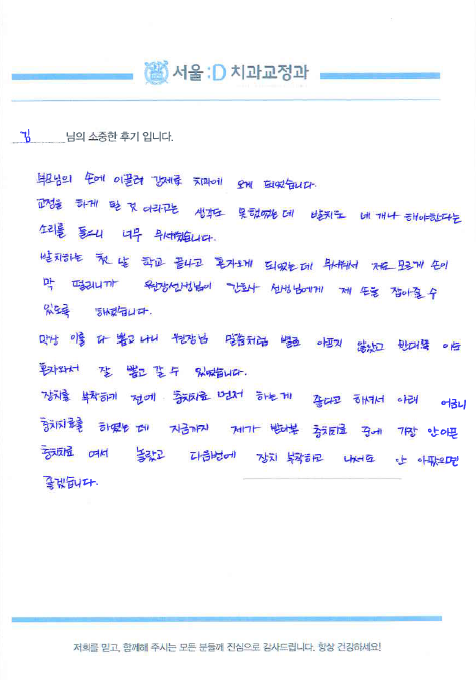 서울:D 치과교정과
김 님의 소중한 후기 입니다.
부모님의 손에 이끌려 강제로 치과에 오게 되었습니다.
교정을 하게 될 것 이라고는 생각도 못했었는데 발치도 네 개나 해야한다는
소리를 들으니 너무 무서웠습니다.
발치하는 첫 날 학교 끝나고 혼자오게 되었는데 무서워서 저도 모르게 손이
막 떨리니까 원장선생님이 간호사 선생님에게 제 손을 잡아줄 수
있도록 하셨습니다.
막상 이를 다 뽑고 나니 원장님 말씀처럼 별로 아프지 않았고 반대쪽 이는
혼자와서 잘 뽑고 갈 수 있었습니다.
장치를 부착하기 전에 충치치료 먼저 하는게 좋다고 하셔서 아래 어금니
충치치료를 하였는데 지금까지 제가 받아본 충치치료 중에 가장 안아픈
충치치료 여서 놀랐고 다음번에 장치 부착하고 나서도 안 아팠으면
좋겠습니다.
저희를 믿고, 함께해 주시는 모든 분들께 진심으로 감사드립니다. 항상 건강하세요!